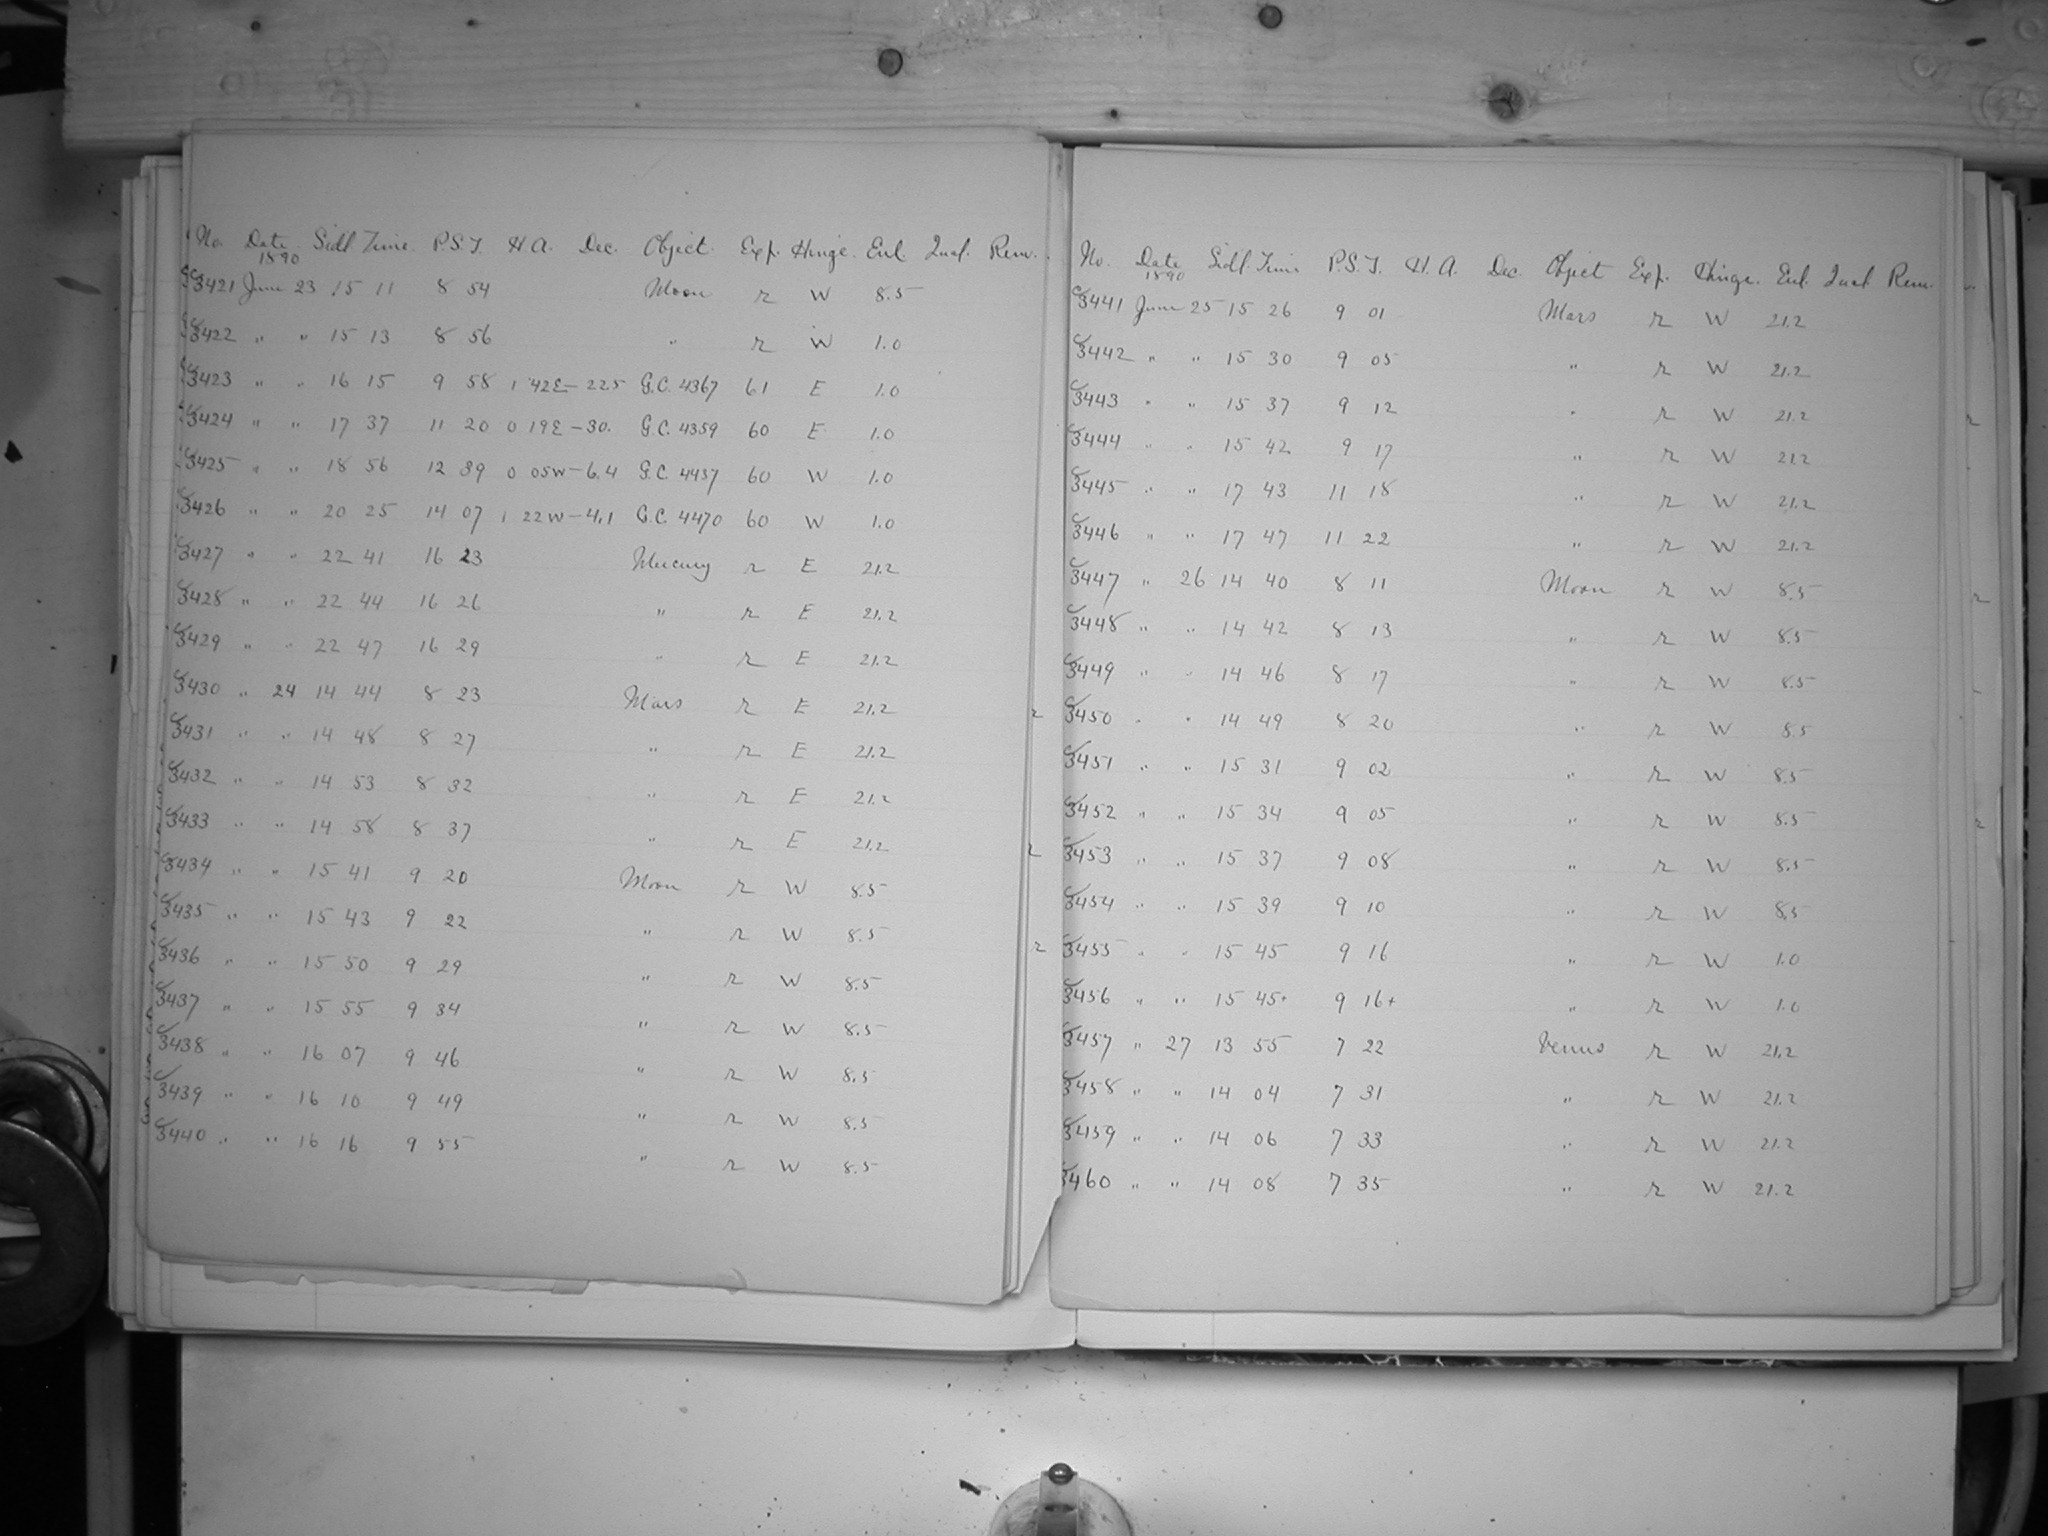 No. Date Sidl. Time. P.S.T. H.A. Dec. Object. Exp. Hinge. Enl. Qual. Rem.
1890
3421 June 23 15 11 8 54 Moon r W 8.5
3422 " " 15 13 8 56 " r W 1.0
3423 " " 16 15 9 58 1 42E -22.5 G.C. 4367 61 E 1.0
3424 " " 17 37 11 20 0 19E -30. G.C. 4359 60 E 1.0
3425 " " 18 56 12 39 0 05W -6.4 G.C. 4437 60 W 1.0
3426 " " 20 25 14 07 1 22W -4.1 G.C. 4470 60 W 1.0
3427 " " 22 41 16 23 Mercury r E 21.2
3428 " " 22 44 16 26 " r E 21.2
3429 " " 22 47 16 29 " r E 21.2
3430 " 24 14 44 8 23 Mars r E 21.2
3431 " " 14 48 8 27 " r E 21.2
3432 " " 14 53 8 32 " r E 21.2
3433 " " 14 58 8 37 " r E 21.2
3434 " " 15 41 9 20 Moon r W 8.5
3435 " " 15 43 9 22 " r W 8.5
3436 " " 15 50 9 29 " r W 8.5
3437 " " 15 55 9 34 " r W 8.5
3438 " " 16 07 9 46 " r W 8.5
3439 " " 16 10 9 49 " r W 8.5
3440 " " 16 16 9 55 " r W 8.5
No. Date Sidl. Time P.S.T. H.A. Dec. Object Exp. Hinge. Enl. Qual Rem.
1890
3441 June 25 15 26 9 01 Mars r W 21.2
3442 " " 15 30 9 05 " r W 21.2
3443 " " 15 37 9 12 " r W 21.2
3444 " " 15 42 9 17 " r W 21.2
3445 " " 17 43 11 18 " r W 21.2
3446 " " 17 47 11 22 " r W 21.2
3447 " 26 14 40 8 11 Moon r W 8.5
3448 " " 14 42 8 13 " r W 8.5
3449 " " 14 46 8 17 " r W 8.5
3450 " " 14 49 8 20 " r W 8.5
3451 " " 15 31 9 02 " r W 8.5
3452 " " 15 34 9 05 " r W 8.5
3453 " " 15 37 9 08 " r W 8.5
3454 " " 15 39 9 10 " r W 8.5
3455 " " 15 45 9 16 " r W 1.0
3456 " " 15 45+ 9 16+ " r W 1.0
3457 " 27 13 55 7 22 Venus r W 21.2
3458 " " 14 04 7 31 " r W 21.2
3459 " " 14 06 7 33 " r W 21.2
3460 " " 14 08 7 35 " r W 21.2